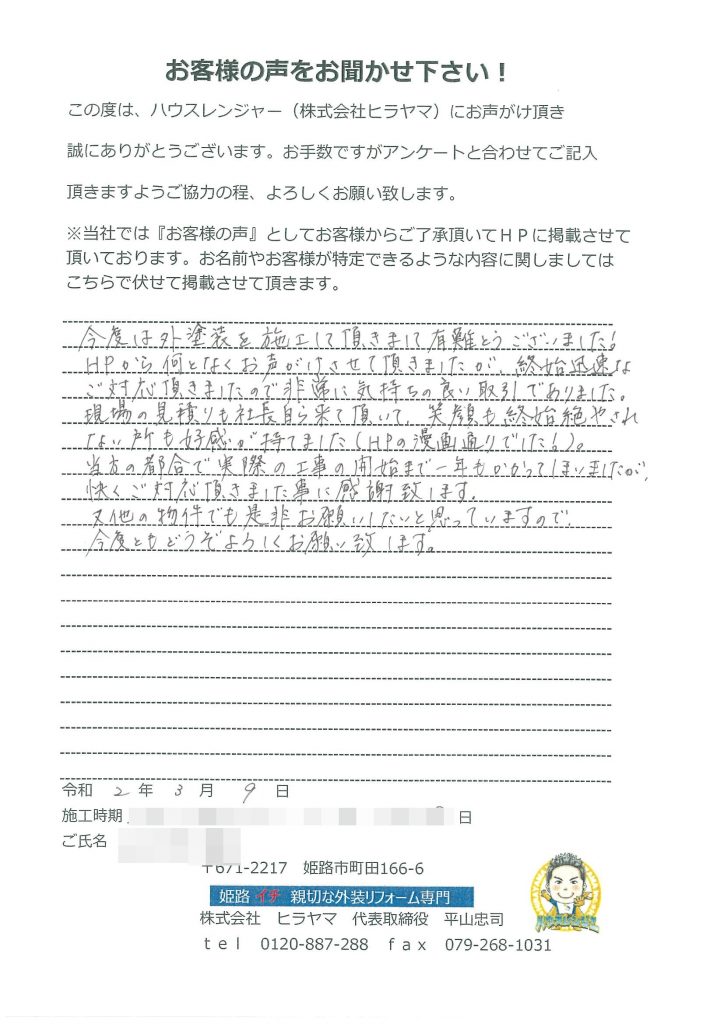 お客様の声をお聞かせ下さい！
この度は、ハウスレンジャー（株式会社ヒラヤマ）にお声がけ頂き
誠にありがとうございます。お手数ですがアンケートと合わせてご記入
頂きますようご協力の程、よろしくお願い致します。
※当社では『お客様の声』としてお客様からご了承頂いてＨＰに掲載させて
頂いております。お名前やお客様が特定できるような内容に関しましては
こちらで伏せて掲載させて頂きます。
今度は外塗装を施工して頂きまして有難とうございました！
HPから何となくお声がけさせて頂きましたが、終始迅速な
ご対応頂きましたので非常に気持ちの良い取引でありました。
現場の見積りも社長自ら来て頂いて、笑顔も終始絶やされ
ない所も好感が持てました（HPの漫画通りでした！）。
当方の都合で実際の工事の開始まで一年もかかってしまいましたが、
快くご対応頂きました事に感謝致します。
又他の物件でも是非お願いしたいと思っていますので、
今度ともどうぞよろしくお願い致します。
令和 2 年 3 月 9 日
施工時期 日
ご氏名
〒671-2217 姫路市町田166-6
姫路 イチ 親切な外装リフォーム専門
株式会社 ヒラヤマ 代表取締役 平山忠司
ｔｅｌ 0120-887-288 ｆａｘ 079-268-1031
ハウスレンジャー